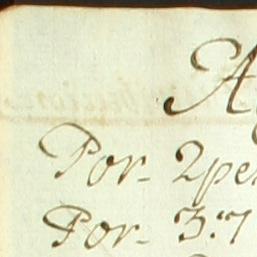 A
Por- 2pe
Por- 3:7